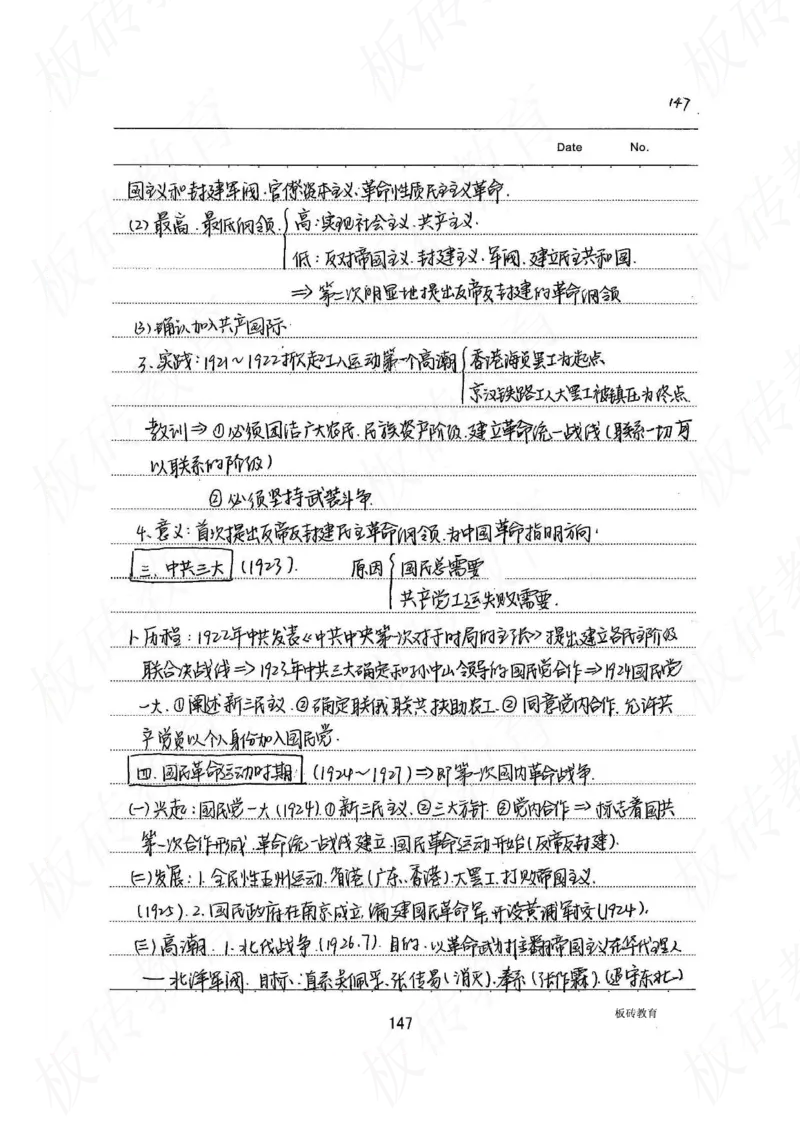 147
Date No.
国主义和封建军阀.官僚资本主义.革命性质民主主义革命.
(2)最高.最低纲领.{高:实现社会主义.共产主义.
低:反对帝国主义.封建主义.军阀.建立民主共和国.
⇒第一次明显地提出反帝反封建的革命纲领
(3)确认加入共产国际.
3.实践:1921~1922掀起工人运动第一个高潮{香港海员罢工为起点
京汉铁路工人大罢工被镇压为终点.
教训⇒①必须团结广大农民.民族资产阶级.建立革命统一战线(联系一切可
以联系的阶级)
②必须坚持武装斗争.
4.意义:首次提出反帝反封建民主革命纲领.为中国革命指明方向.
三.中共三大 (1923). 原因{国民党需要
共产党工运失败需要.
1.历程:1922年中共发表《中共中央第一次对于时局的主张》提出建立各民主阶级
联合决战线⇒1923年中共三大确定和孙中山领导的国民党合作⇒1924国民党
一大.①阐述新三民主义.②确定联俄联共扶助农工.②同意党内合作.允许共
产党员以个人身份加入国民党.
四.国民革命运动时期 (1924~1927)⇒即第一次国内革命战争.
(一)兴起:国民党一大(1924).①新三民主义.②三大方针.③党内合作⇒标志着国共
第一次合作形成.革命统一战线建立.国民革命运动开始(反帝反封建).
(二)发展:1.全民性五卅运动.省港(广东、香港)大罢工.打败帝国主义.
(1925).2.国民政府在南京成立.编建国民革命军.开设黄浦军校(1924).
(三)高潮.1.北伐战争(1926.7).目的:以革命武力打主翻帝国主义在华代理人
—北洋军阀.目标:直系吴佩孚、张传芳(消灭).奉系(张作霖).(退守东北)
147
板砖教育